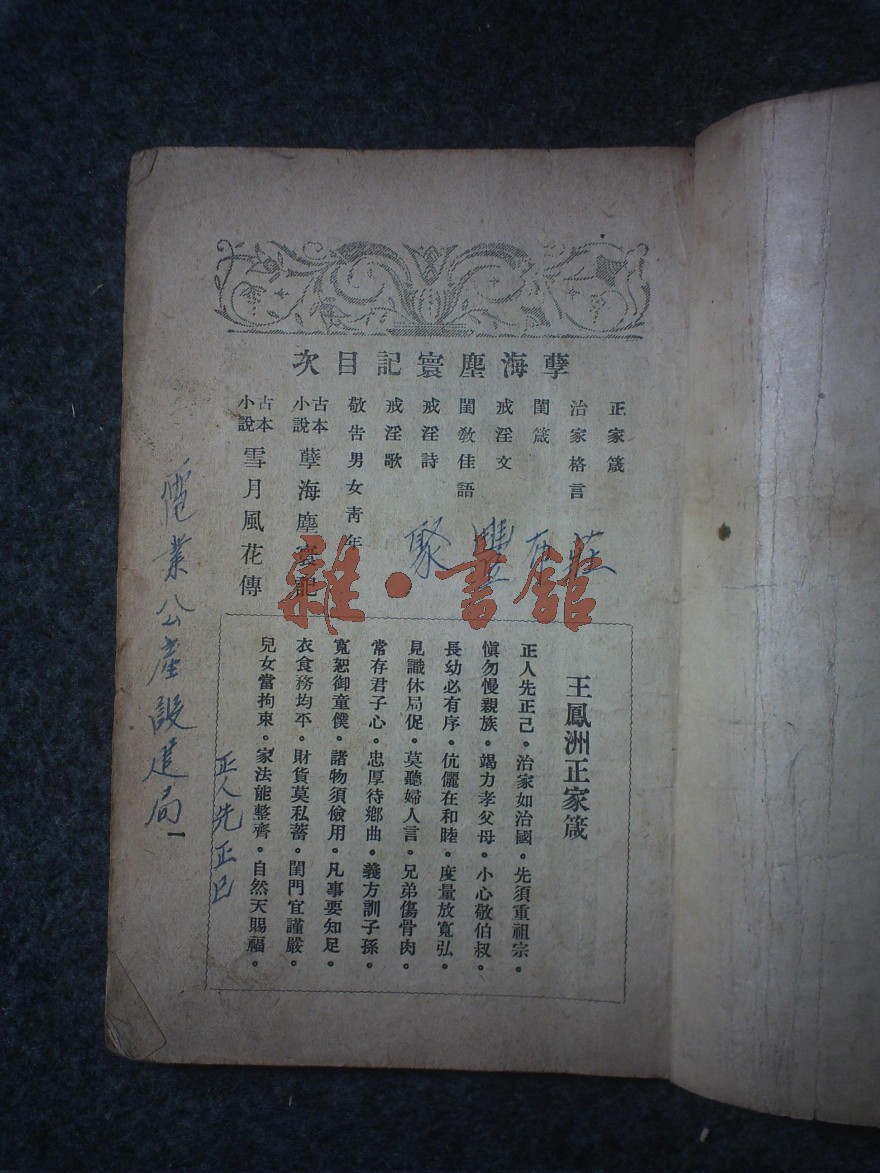 孽海塵寰記目次
正家箴
治家格言
閨箴
戒淫文
閨教佳語
戒淫詩
戒淫歌
敬告男女青年
古本小說 孽海塵寰記
古本小說 雪月風花傳
王鳳洲正家箴
正人先正己。治家如治國。先須重祖宗。
愼勿慢親族。竭力孝父母。小心敬伯叔。
長幼必有序。伉儷在和睦。度量放寬弘。
見識休局促。莫聽婦人言。兄弟傷骨肉。
常存君子心。忠厚待鄉曲。義方訓子孫。
寬恕御童僕。諸物須儉用。凡事要知足。
衣食務均平。財貨莫私蓄。閨門宜謹嚴。
兒女當拘束。家法能整齊。自然天賜福。
一
聚豐
業公產設建局
正人先正己
雜·書館